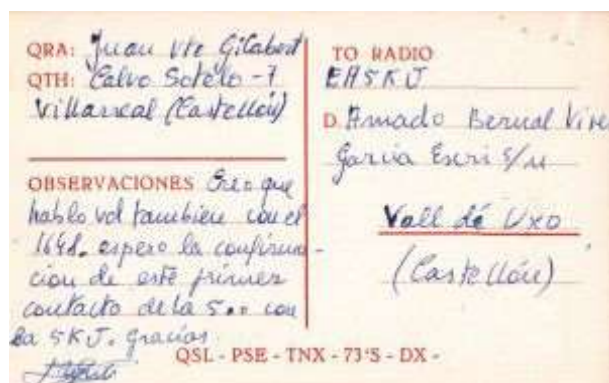 QRA: Juan Vte Gilabert
QTH: Calvo Sotelo - 7
Villarreal (Castellón)
OBSERVACIONES Creo que
hablo vd tambien con el
1648. espero la confirma-
cion de este primer
contacto de la 5.. con
la 5KJ. gracias
TO RADIO
EA5KJ
D. Amado Bernal Vive
Garcia s/n
Vall dé Uxo
(Castellón)
QSL - PSE - TNX - 73'S - DX -